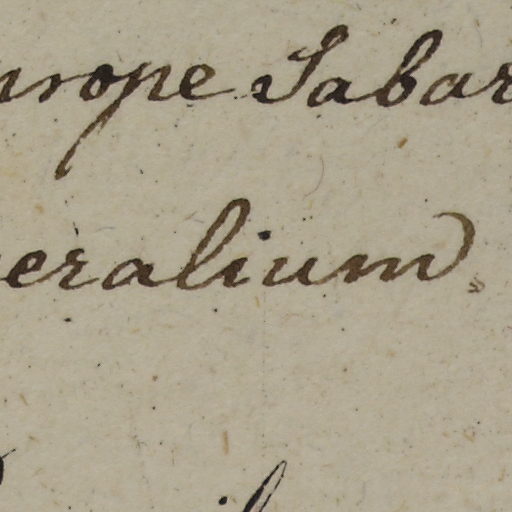 prope Sabar
eralium